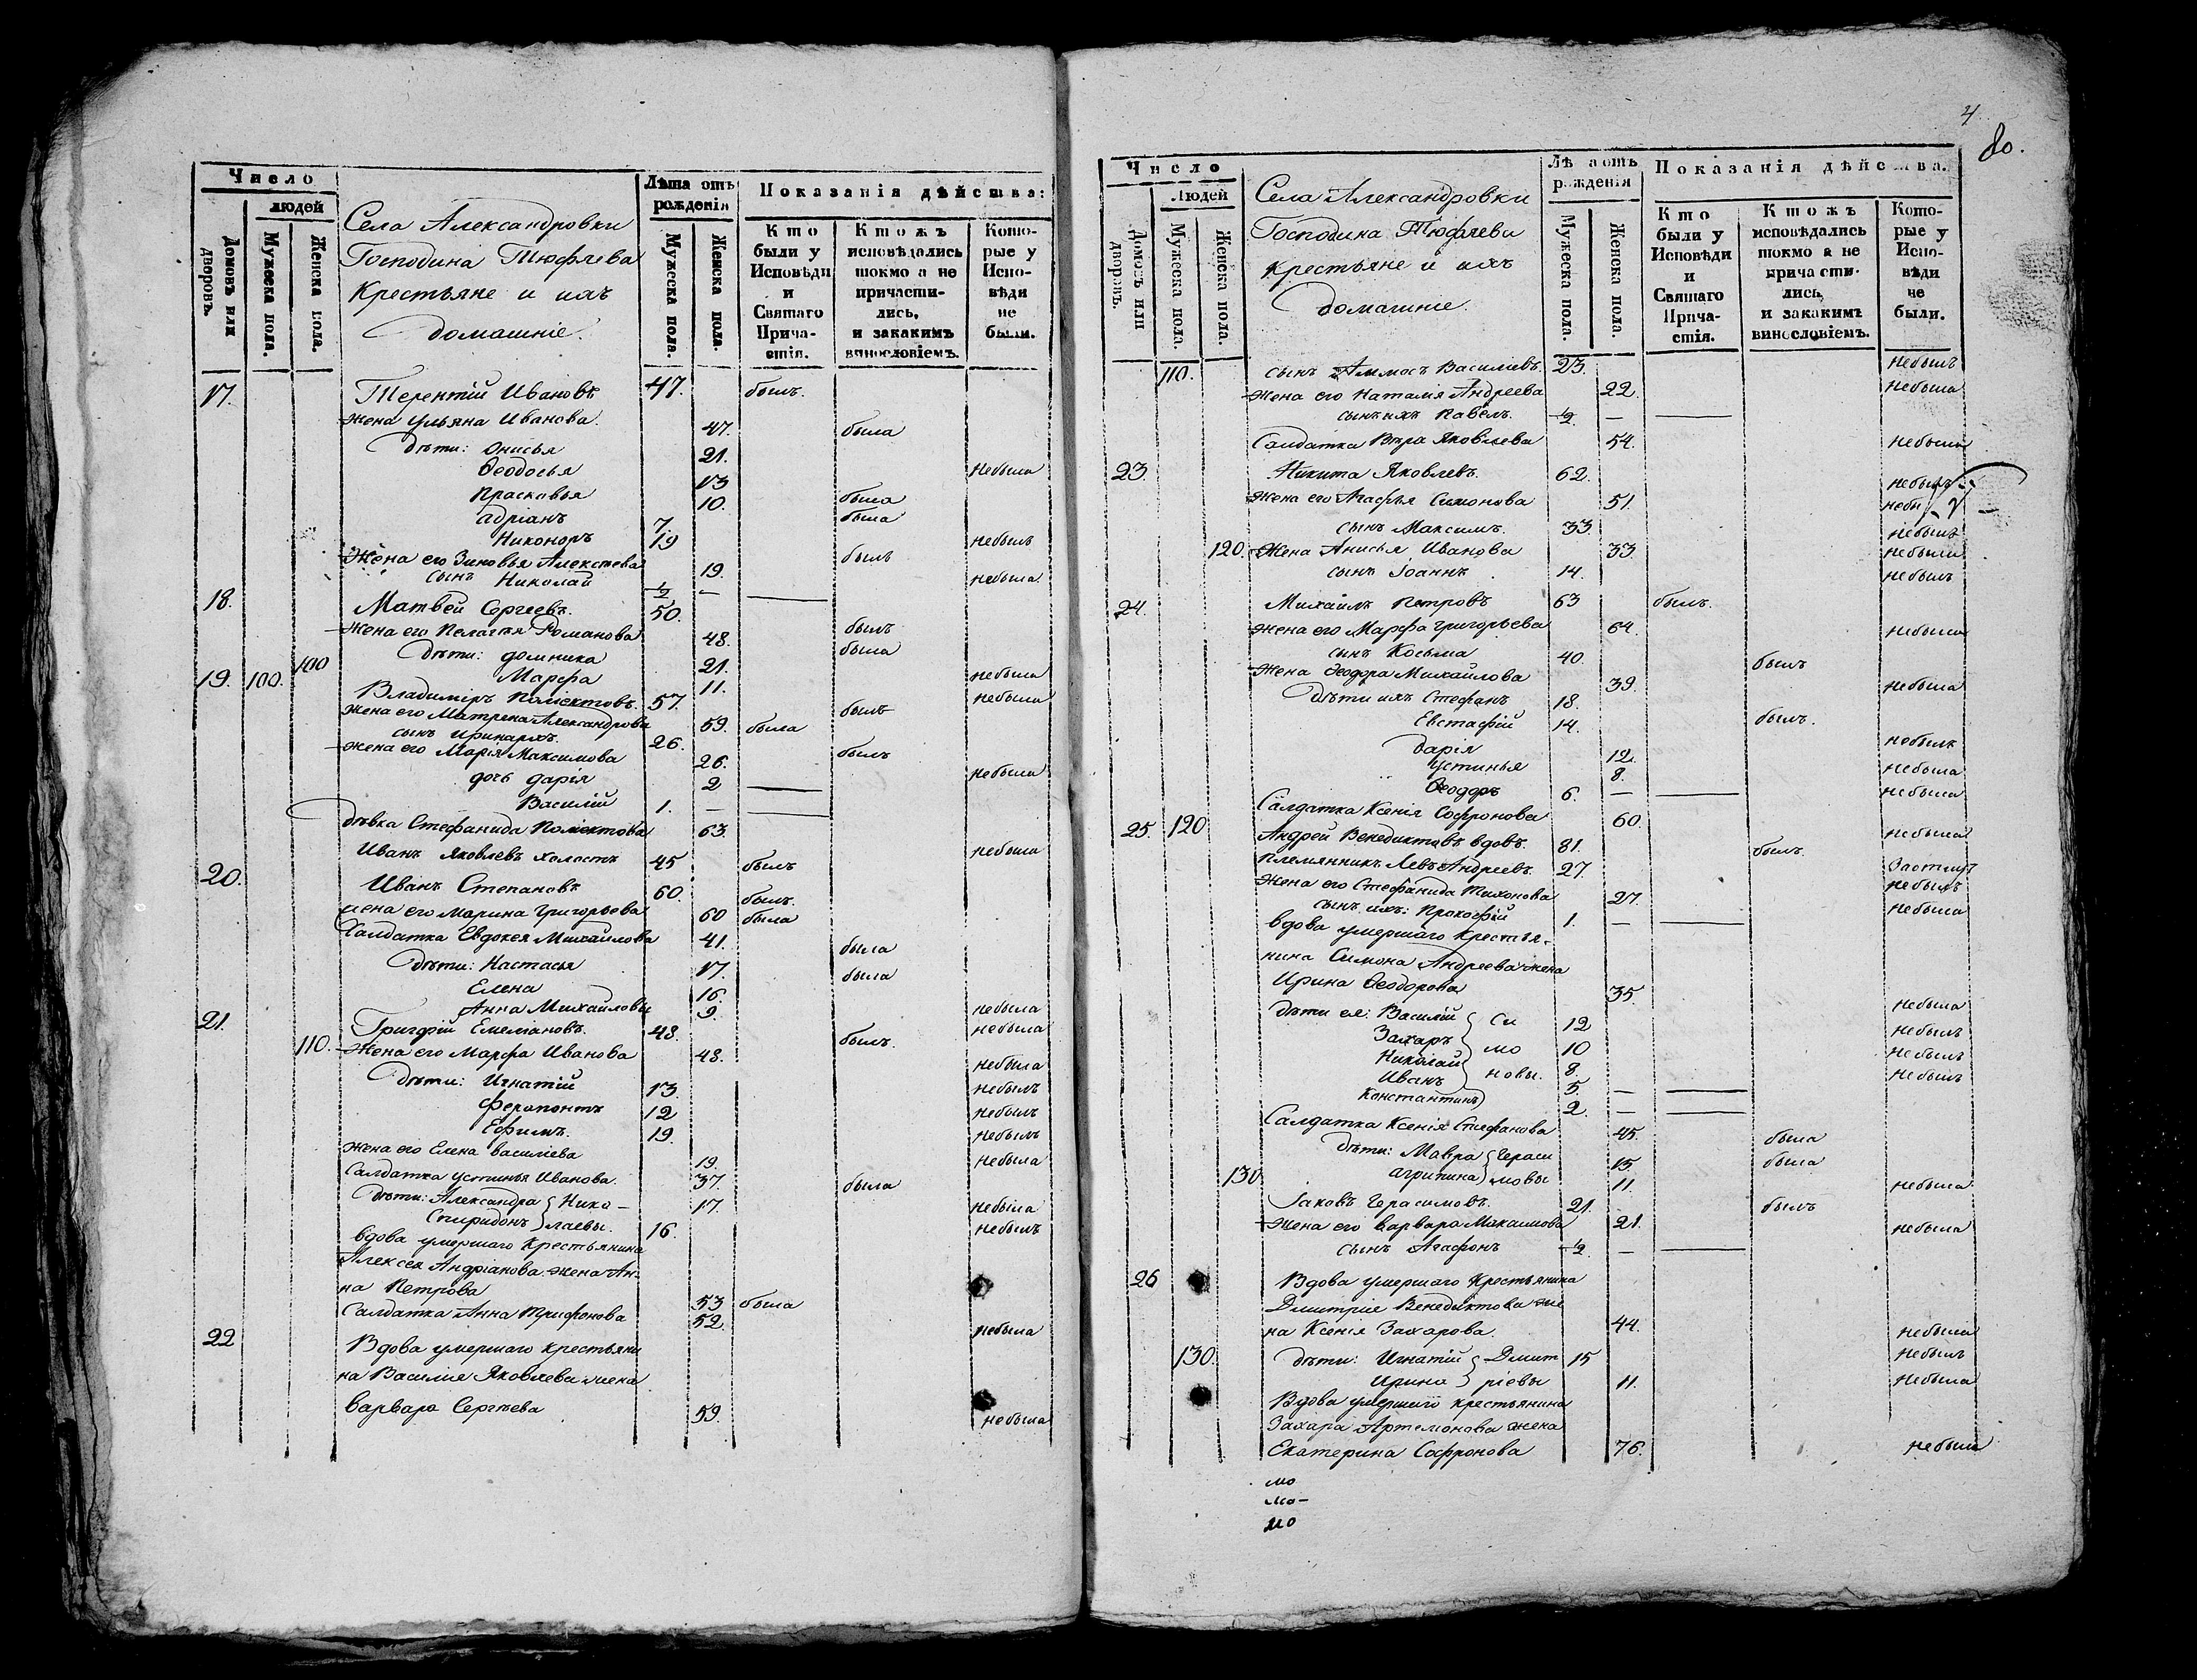 Число
людей
Домовъ или дворовъ.
Мужеска пола.
Женска пола.
Села Александровки
Господина Тюфлева
Крестьяне и ихъ
домашніе.
Лѣта отъ рожденія
Мужеска пола.
Женска пола.
Показанія дѣйства:
Кто были у Исповѣди и Святаго Прича-стія.
Ктожъ исповѣдались токмо а не причасти-лись, и закакимъ винословіемъ.
Кото-рые у Испо-вѣди не были.
17. Терентій Ивановъ 47. былъ.
жена Ульяна Иванова. 47. была
дѣти: Онисья 21.
Ѳеодосья 13 небыла
Прасковья 10. была
Адріанъ 7. была
Никоноръ 19 небылъ
Жена его Зиновья Алексѣева 19. былъ
сынъ Николай 1/2 — небыла
18. Матвей Сергеевъ. 50.
жена его Пелагея Романова 48. былъ
100 дѣти: домника 21. была
Марфа 11. небыла
19. 100. Владимiръ Полiектовъ. 57. небыла
жена его Матрена Александрова 59. была былъ
сынъ Иринархъ. 26.
жена его Марія Максимова 26. былъ
дочь дарія 2 небыла
Василій 1. —
дѣвка Стефанида Полiектова 63.
Иванъ Яковлевъ холостъ 45 былъ небыла
20. Иванъ Степановъ 60. былъ.
жена его Марина Григорьева 60 была
Салдатка Евдокея Михайлова 41.
дѣти: Настасья 17. была
Елена 16. была
Анна Михайловы 9. небыла
21. Григорій Емельяновъ. 48. небыла
110. Жена его Марфа Иванова 48. былъ.
дѣти: Игнатій 13. небыла
Ферапонтъ 12 небылъ
Ефимъ. 19. небылъ
жена его Елена Василіева 19. небылъ
Салдатка Устинья Иванова. 37. небыла
дѣти: Александра Нико- 17. была
Спиридонъ лаевы. 16. небыла
вдова умершаго Крестьянина небылъ
Алексея Андріанова жена Ан-
на Петрова 53 была
Салдатка Анна Трифонова 52.
22 Вдова умершаго крестьяни небыла
на Василіе Яковлева жена
Варвара Сергѣева 59. небыла
4
80.
Число
Людей
Домовъ или дворовъ.
Мужеска пола.
Женска пола.
Села Александровки
Господина Тюфлеви
крестьяне и ихъ
домашніе.
Лѣ а отъ рожденія
Мужеска пола.
Женска пола.
Показанія дѣйства.
Кто были у Исповѣди и Святаго Прича-стія.
Ктожъ исповѣдались токмо а не причасти-лись, и закакимъ винословіемъ.
Кото-рые у Испо-вѣди не были.
110. сынъ Аммосъ Василіевъ. 23. небылъ
жена его Наталія Андреева 22. небыла
сынъ ихъ Павелъ. 1/2. —
Салдатка Вѣра Яковлева 54. небыла
23. Никита Яковлевъ. 62.
жена его Агафья Симонова 51. небылъ
сынъ Максимъ 33. небы
120. Жена Анисья Иванова 33. небылъ
сынъ Іоаннъ 14. небыла
24. Михаилъ Петровъ 63 былъ. небылъ
жена его Марфа Григорьева 64.
сынъ Косьма 40. небыла
Жена Ѳеодора Михайлова 39. былъ
дѣти ихъ Стефанъ 18. небыла
Евстафій 14. былъ.
дарія 12. небылъ
Устинья 8. небыла
Ѳеодоръ 6. — небыла
Салдатка Ксенія Софронова 60.
25. 120 Андрей Венедиктовъ вдовъ. 81. небыла
племянникъ Левъ Андреевъ. 27. былъ.
Жена его Стефанида Тихонова 27. небылъ
сынъ ихъ: Прокофій 1. — небыла
вдова умершаго Крестья-
нина Симона Андреева жена
Ирина Ѳеодорова 35.
дѣти ея: Василій Си 12 небыла
Захаръ мо 10 небылъ
Николай новы. 8. небылъ
Иванъ 5. — небылъ
Константинъ 2. —
Салдатка Ксенія Стефанова 45.
дѣти: Мавра Гераси 15 была
130 агрипина мовы 11. была
Іаковъ Герасимовъ. 21. небыла
жена его Варвара Макаимова 21. былъ
сынъ Агафонъ 1/2. — небыла
26 Вдова умершаго Крестьянина
Дмитріе Венедиктова же
на Ксенія Захарова. 44.
130. дѣти: Игнатій Дмит 15 небыла
Ирина ріевы 11. небылъ
Вдова умершаго крестьянина небыла
Захара Артемонова жена
Екатерина Софронова 76. небыла
мо
мо-
мо